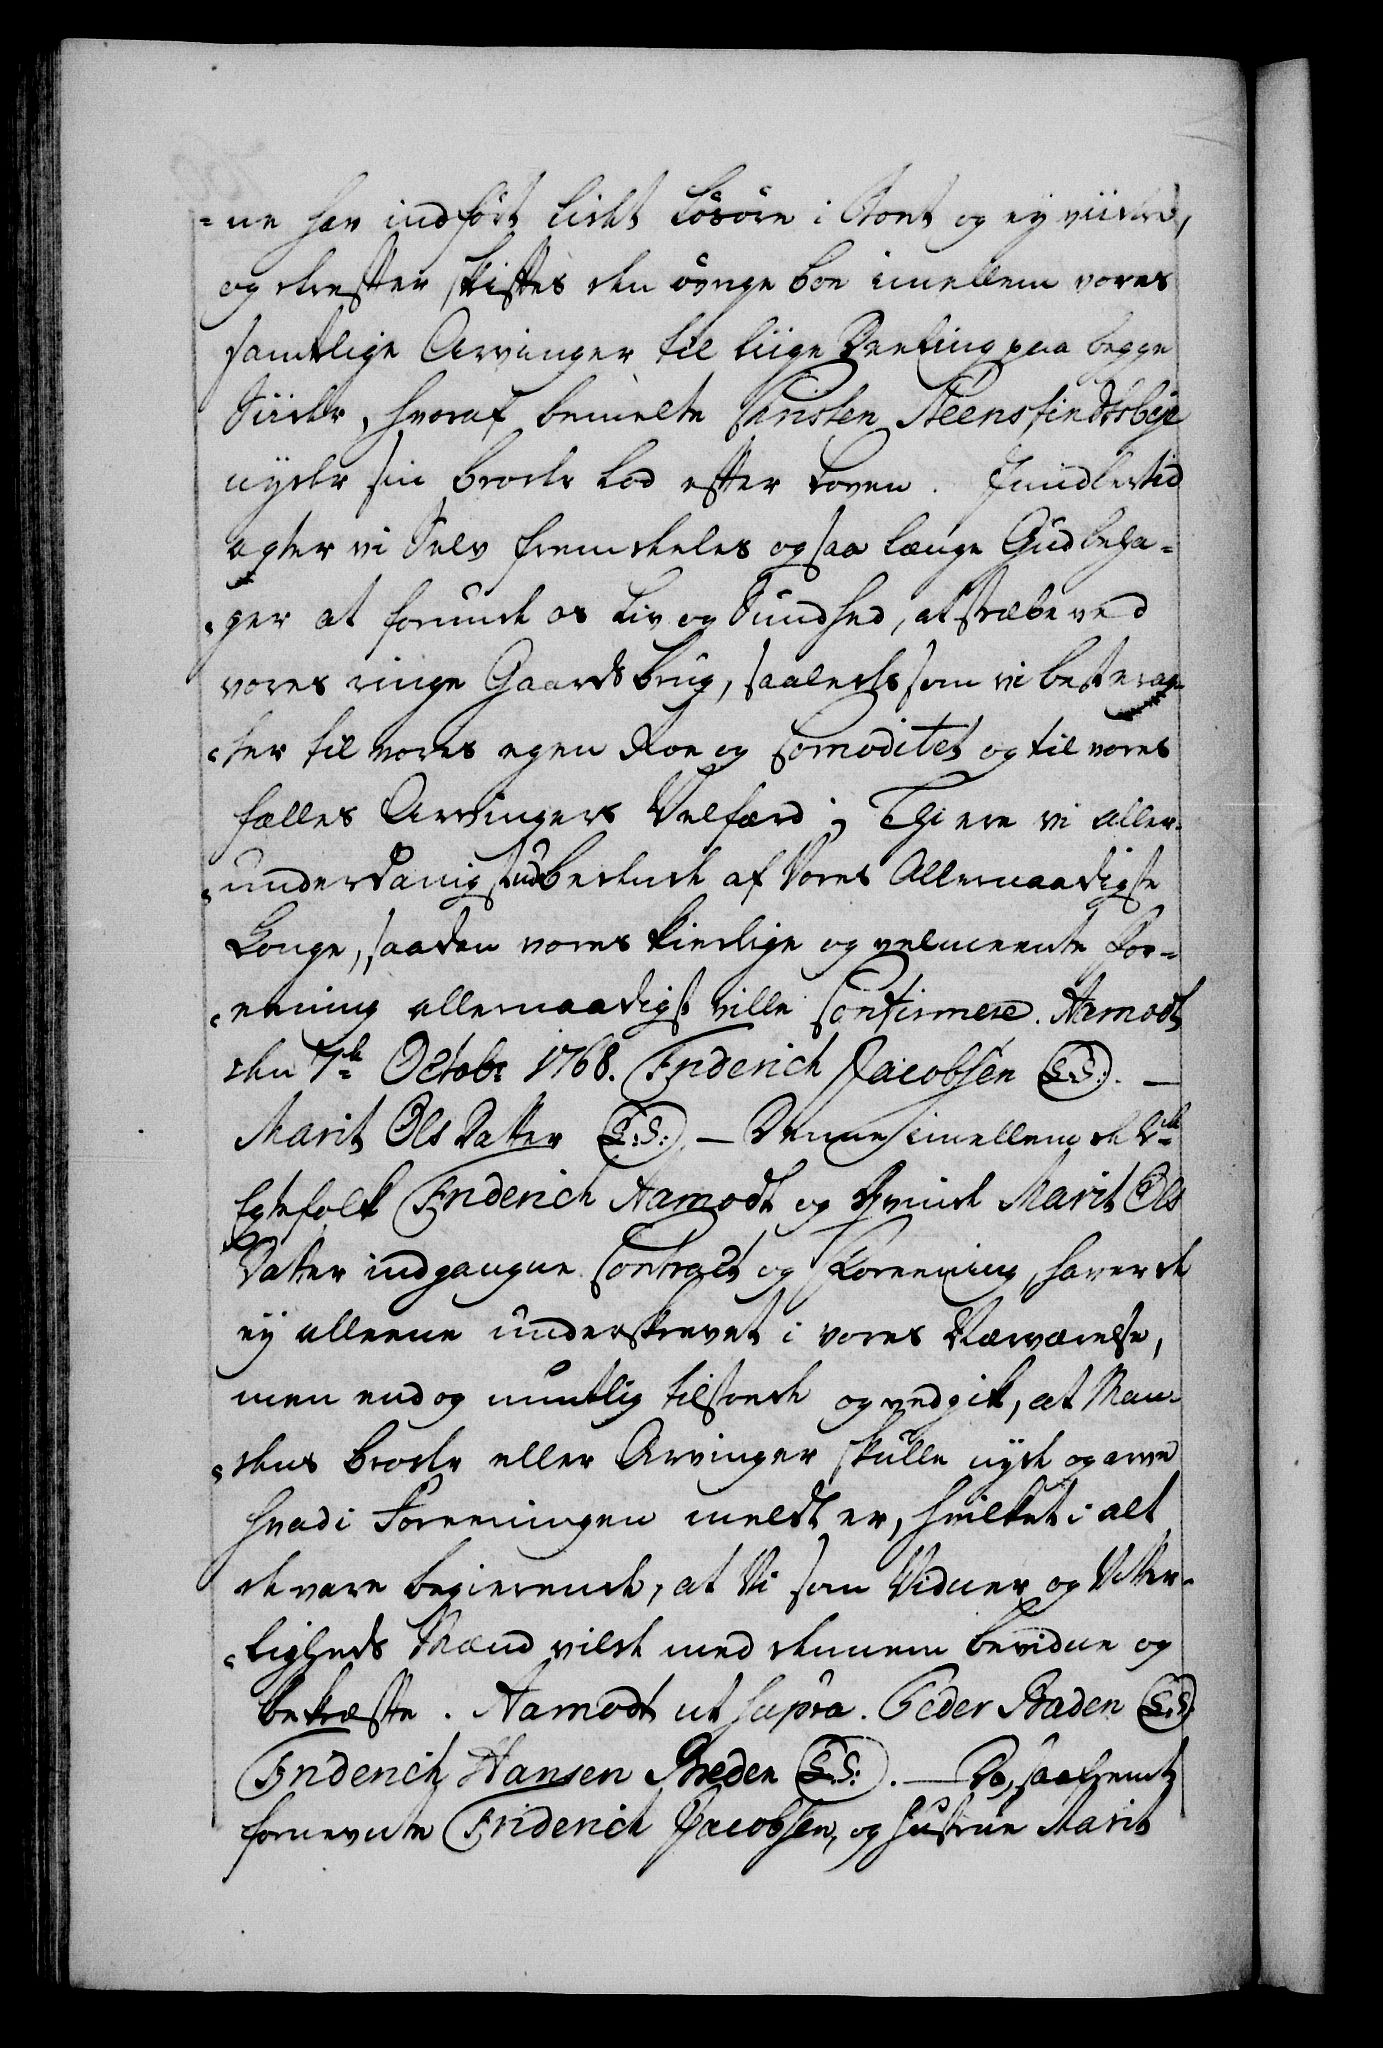 =ne har indført lidet Løsøre i Boet og ey viidere,
og derefter skiftes den øvrige Boe imellem vores
samtlige Arvinger til liige Deeling paa begge
Siider, hvoraf bemelte Christen Steensfindtsbye
nyder sin broder Lod efter Loven. Imidlertid
agter vi Selv fremdeeles og saa længe Gud beha=
=ger at forunde os Liv og Sundhed, at stræbe ved
vores ringe Gaards brug, saaledes som vi best erag=
=ter til vores egen Roe og Comoditet og til vores
fælles Arvingers Velfærd; Thi ere vi aller=
=underdanigst udbedende af Vores Allernaadigste
Konge, saadan vores kierlige og velmeente For=
=eening allernaadigst ville Confirmere. Aamodt
den 7de Octobr 1768. Friderich Jacobsen (L.S.). —
Marit Ols Datter (L:S:). — Denne imellem de
Egtefolk Friderich Aamodt og Qvinde Marit Ols
Datter indgangne Contract og Foreening, haver de
ey alleene underskrevet i vores Nærværelse,
men endog mundtlig tilstoede og vedgik, at Man=
=dens Broder eller Arvinger skulle nyde og arve
hvad i Foreeningen meldt er, hvilket i alt
de vare begierende, at Vi som Vidner og Vitter=
=ligheds Mænd vilde med dennem bevidne og
bekræfte. Aamodt ut supra. Peder Braden (L.S.)
Friderich Hansen Breden (L.S:). — Da, saafremt
fornevnte Friderich Jacobsen, og Hustrue Marit